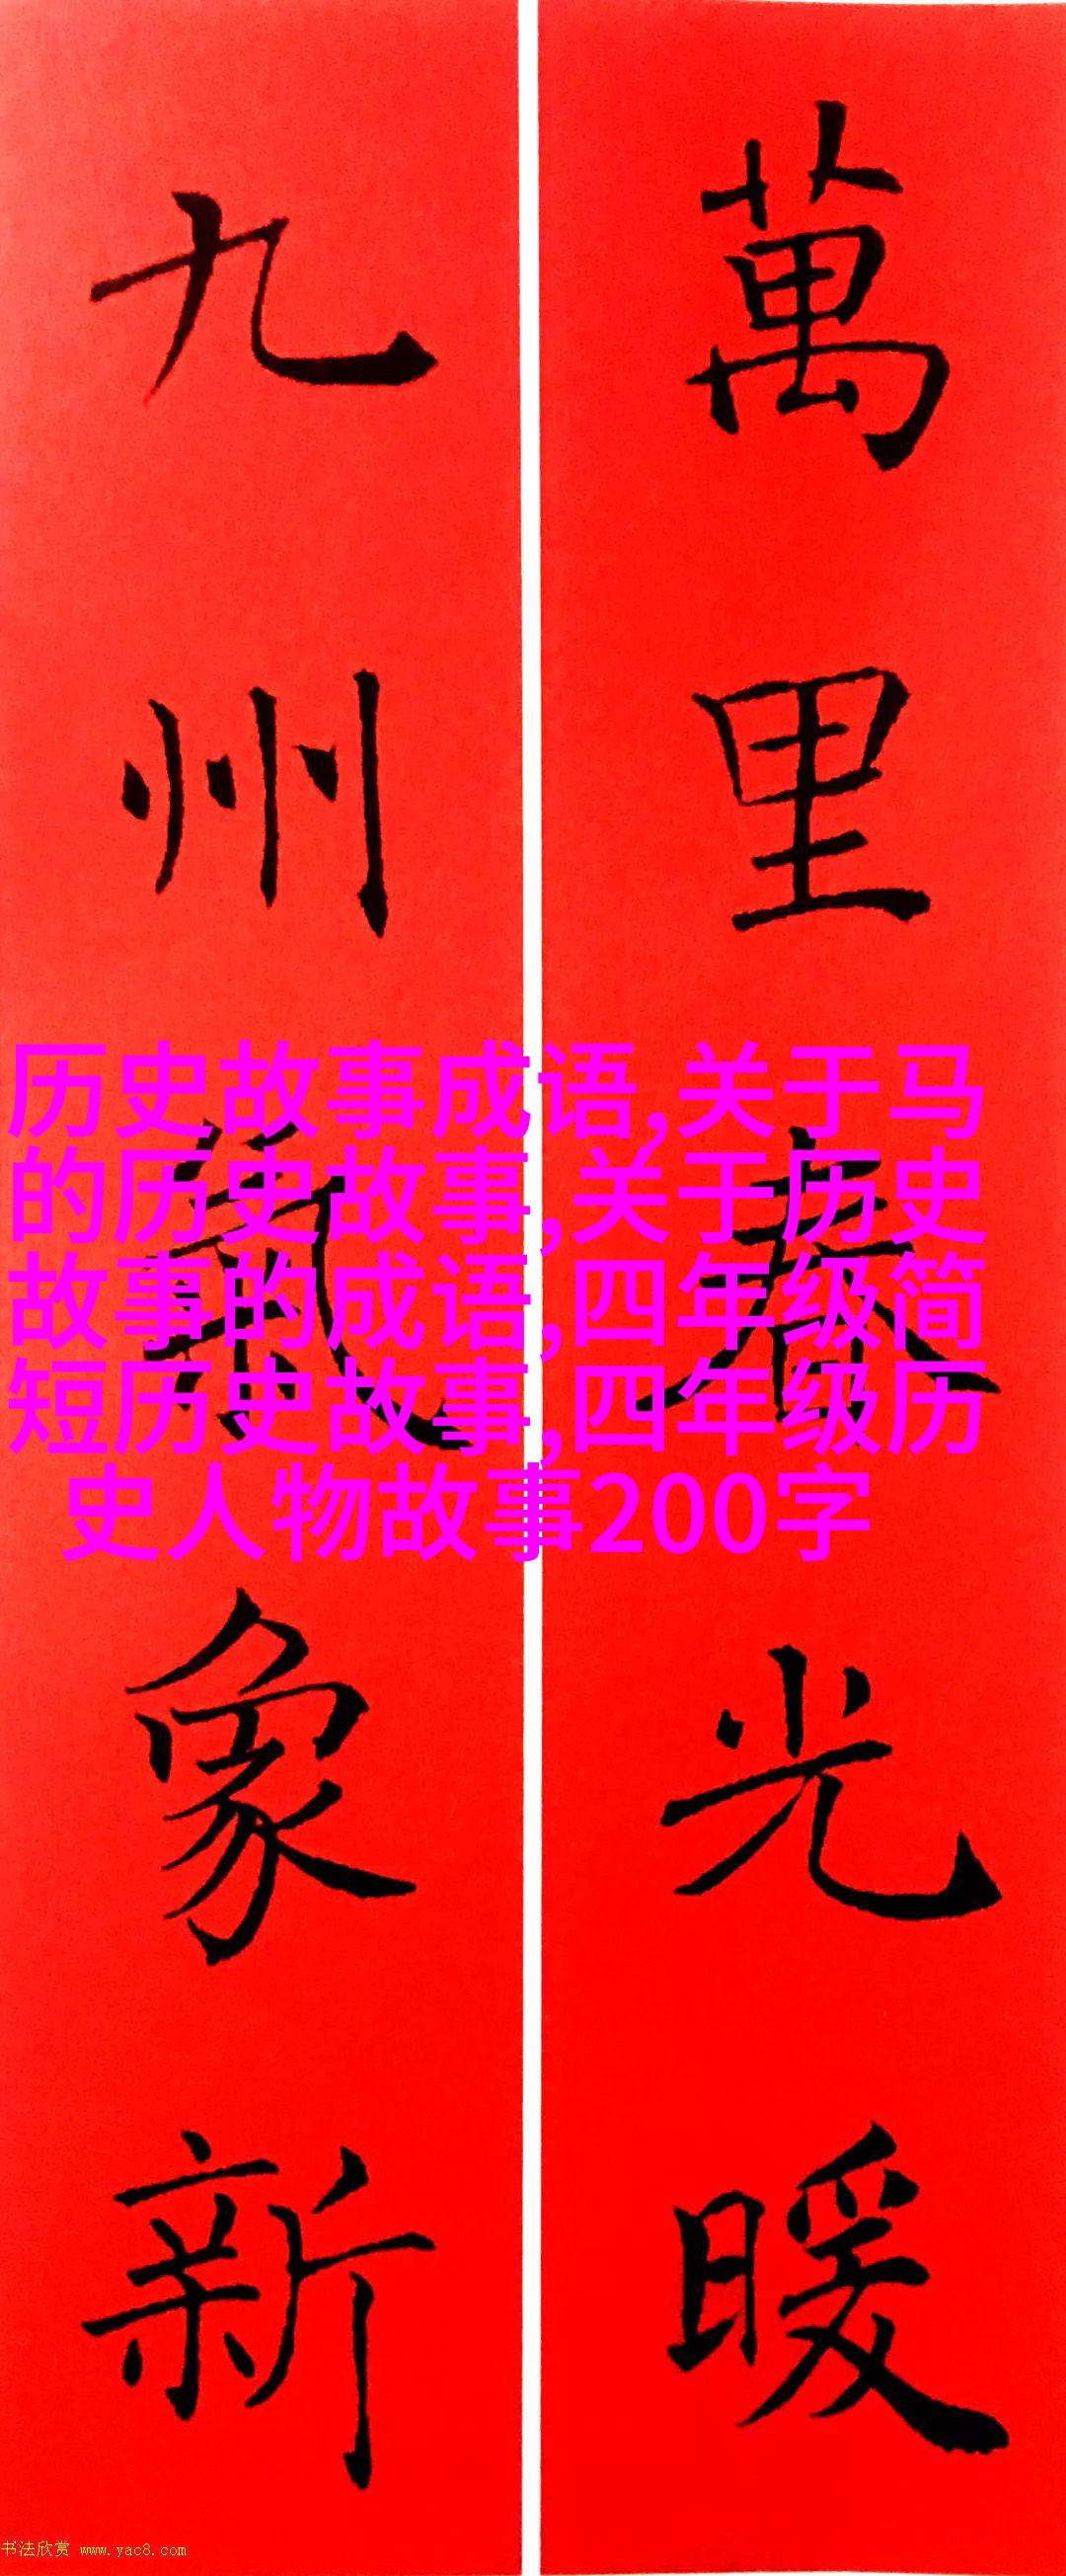 萬里春光暖
九州氣象新
历史故事成语,关于马
的历史故事,关于历史
故事的成语,四年级简
短历史故事,四年级历
史人物故事200字
书法欣赏 www.yac8.com